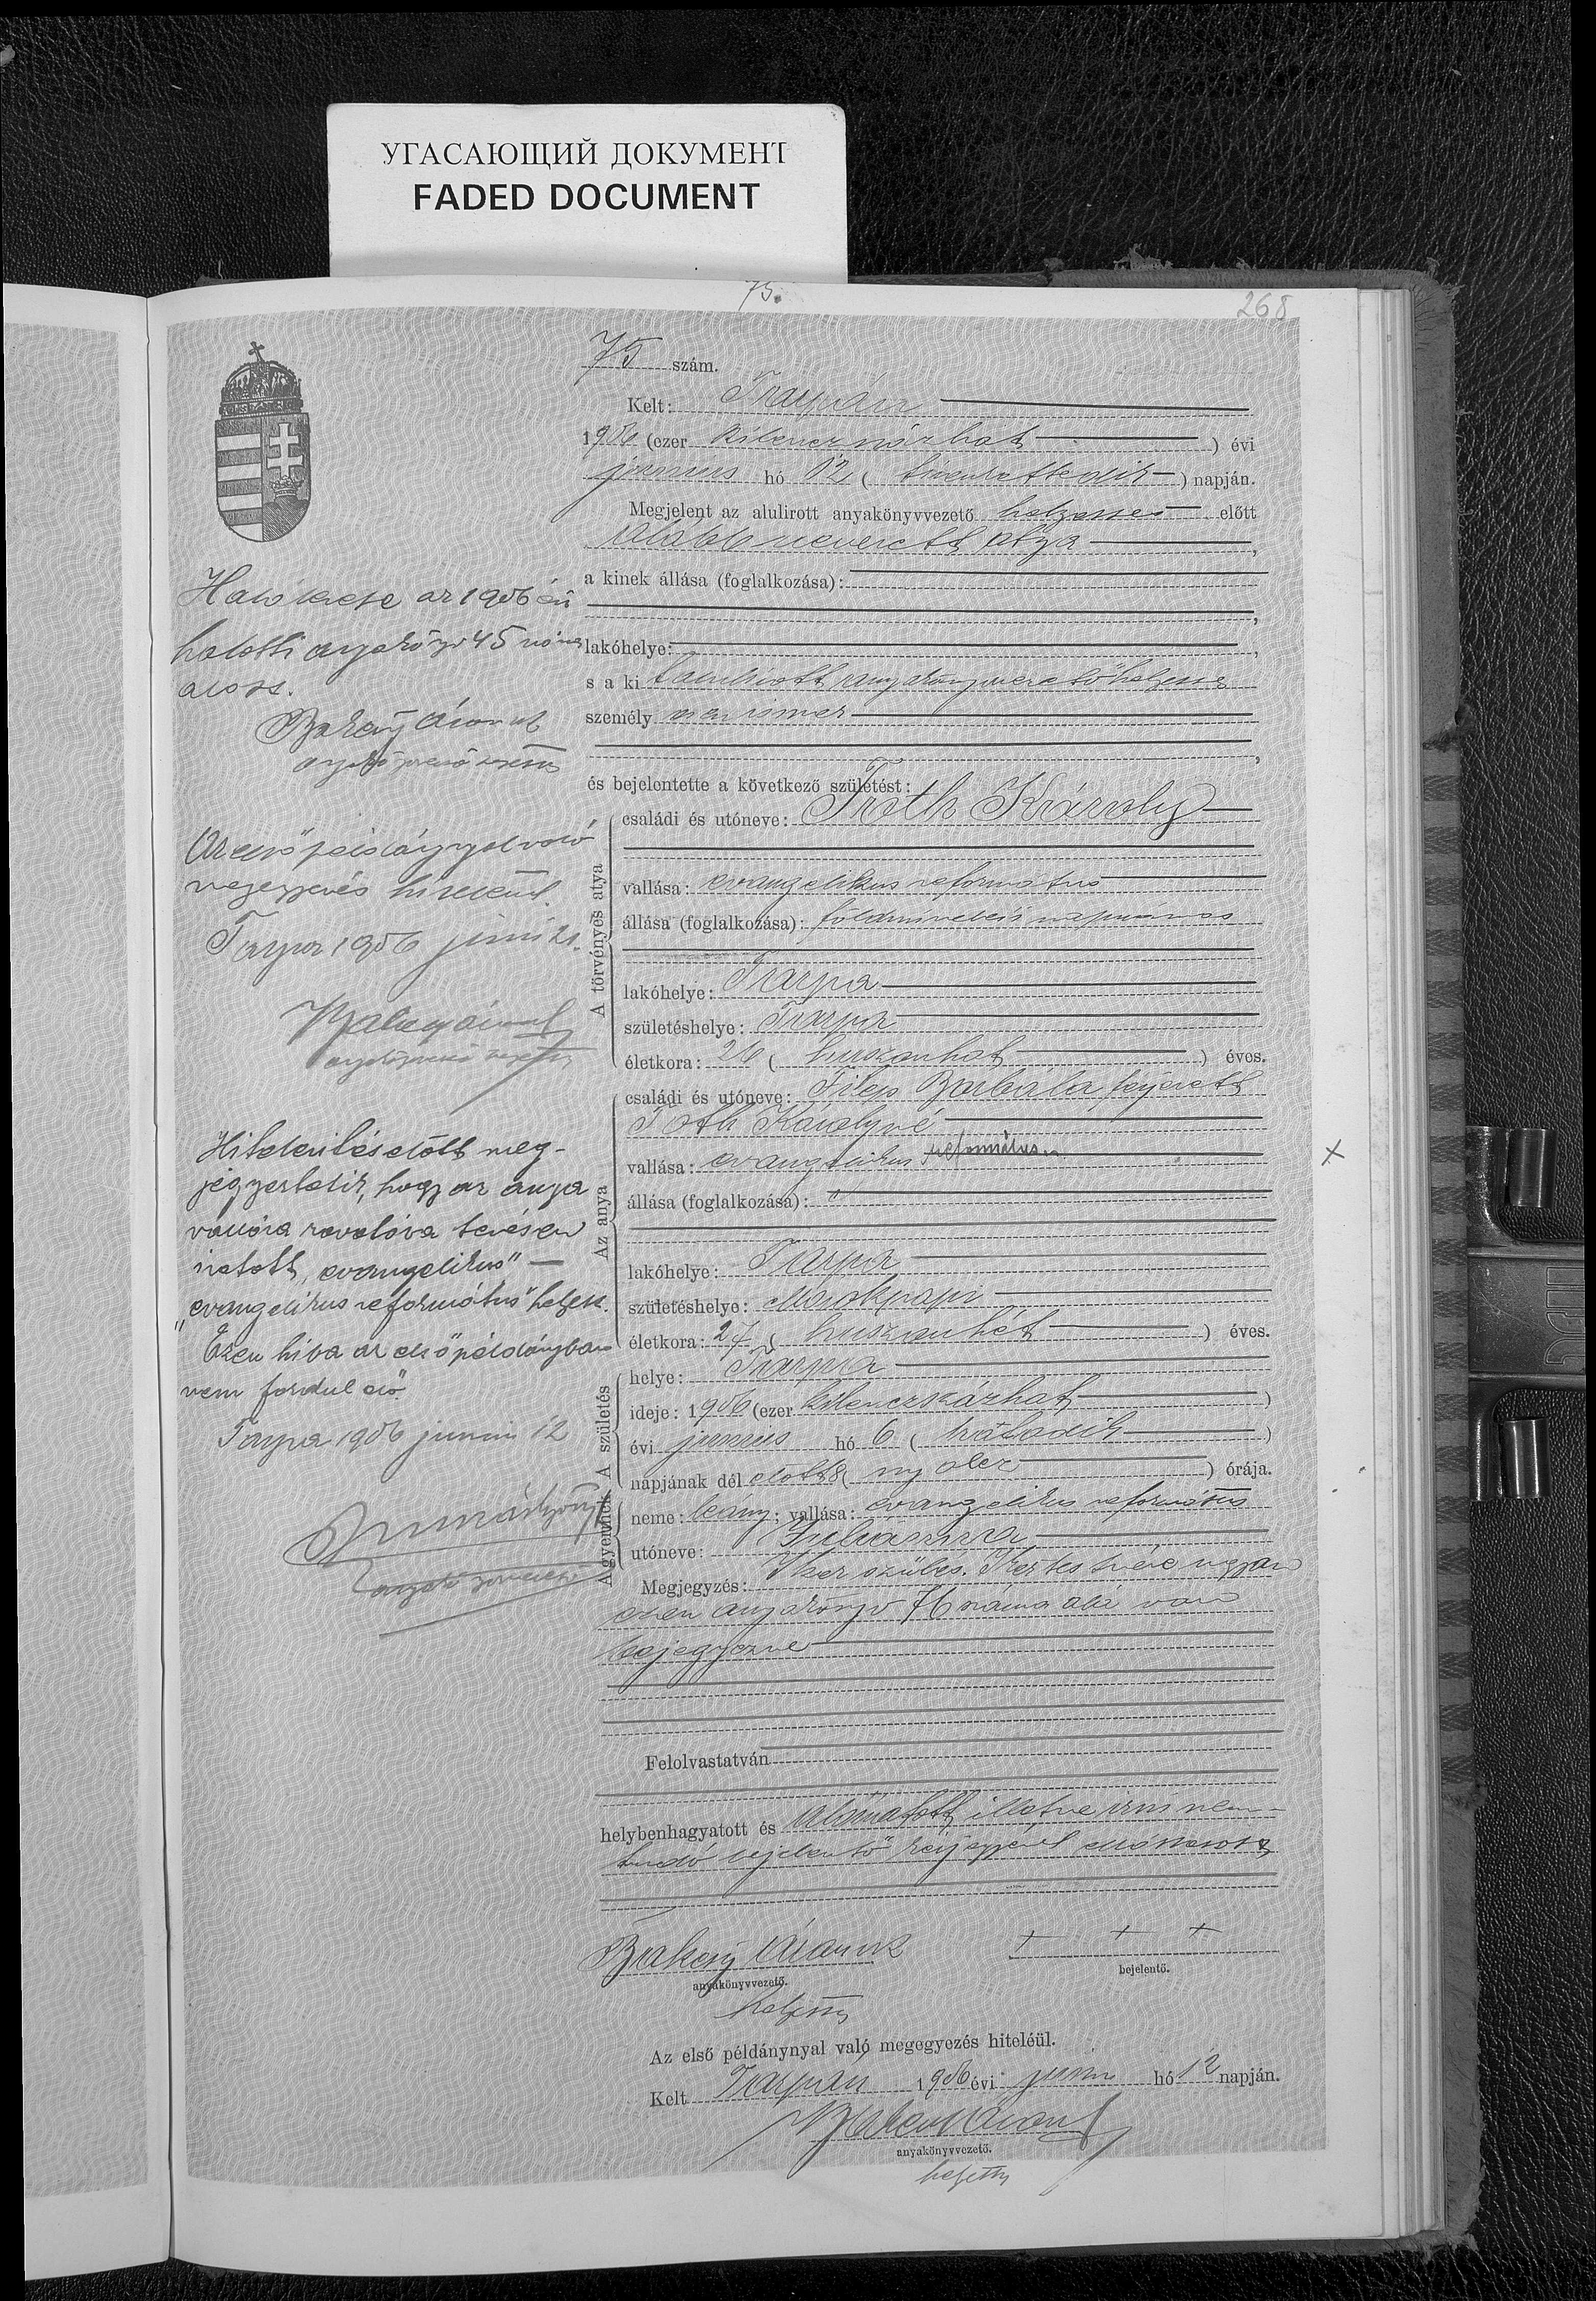 УГАСАЮЩИЙ ДОКУМЕНТ
FADED DOCUMENT
75.
268
75 szám.
Kelt: Tarpán
1906 (ezer kilenczszázhat) évi
junius hó 12 (tizenkettedik) napján.
Megjelent az alulirott anyakönyvvezető helyettes előtt
alább nevezett atya,
a kinek állása (foglalkozása):
lakóhelye:
s a ki alulirott anyakönyvvezető helyettes
személyesen ismer
és bejelentette a következő születést:
A törvényes atya
családi és utóneve: Tóth Károly
vallása: evangelikus református
állása (foglalkozása): földmivelési napszámos
lakóhelye: Tarpa
születéshelye: Tarpa
életkora: 26 (huszonhat) éves.
Az anya
családi és utóneve: Filep Borbála férjezett
Tóth Károlyné
vallása: evangelikus református
állása (foglalkozása): "
lakóhelye: Tarpa
születéshelye: Marokpapi
életkora: 27 (huszonhét) éves.
A születés
helye: Tarpa
ideje: 1906 (ezer kilenczszázhat)
évi junius hó 6 (hatodik)
napjának dél előtt 8 (nyolcz) órája.
A gyermek
neme: leány; vallása: evangelikus református
utóneve: Juliánna
Megjegyzés: Iker szülés. Ikertestvére ugyan
ezen anyakönyv 76 száma alá van
bejegyezve
Felolvastatván
helybenhagyatott és aláíratott, illetve irni nem
tudó bejelentő kézjegyével elláttatott
Bakay Áron sk
anyakönyvvezető.
helyettes
+ + +
bejelentő.
Az első példánynyal való megegyezés hiteléül.
Kelt Tarpán 1906 évi juni hó 12 napján.
Bakay Áron
anyakönyvvezető.
helyettes
Halálesete az 1906 évi
halotti anyakönyv 45 száma
alatt.
Bakay Áron sk
anyakönyvvezető helyettes
Az első példánynyal való
megegyezés hiteléül.
Tarpa 1906 juni 21.
Bakay Áron
anyakönyvvezető helyettes
Hitelesités előtt meg-
jegyeztetik, hogy az anya
vallása rovatába tévesen
iratott „evangelikus" —
„evangelikus református" helyett.
Ezen hiba az első példányban
nem fordul elő.
Tarpa 1906 junius 12
anyakönyvvezető
×